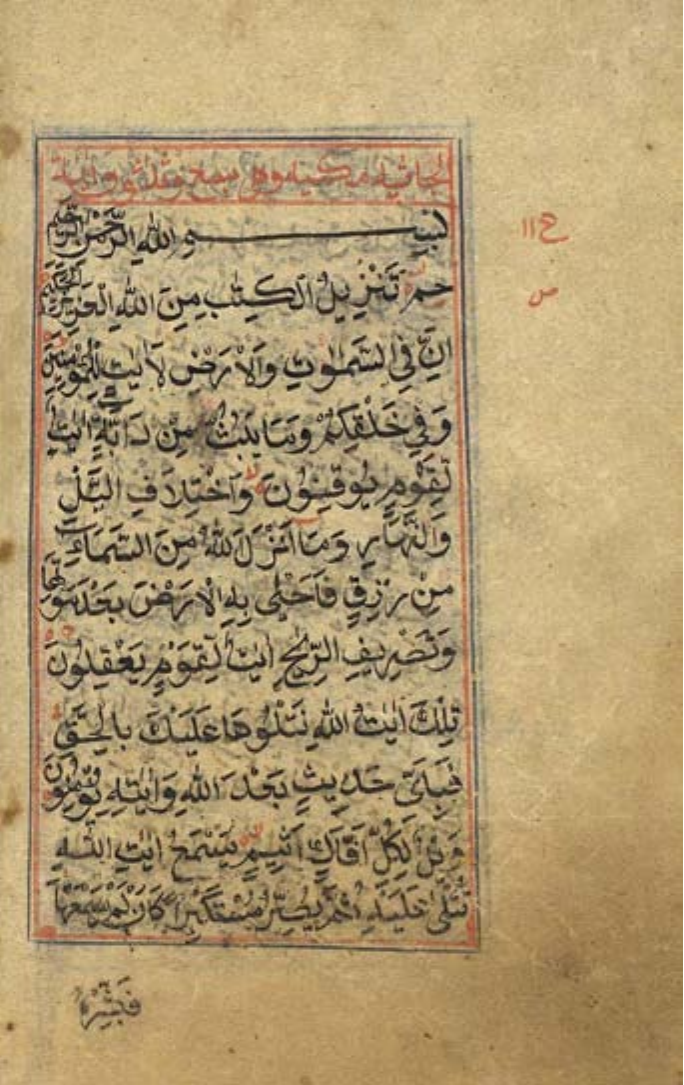 الجاثية مكية وهي سبع وثلثون اية
بسم الله الرحمن الرحيم
حم تَنْزِيلُ الْكِتٰبِ مِنَ اللهِ الْعَزِيزِ الْحَكِيمِ
اِنَّ فِي السَّمٰوٰتِ وَالْاَرْضِ لَاٰيٰتٍ لِلْمُؤْمِنِينَ
وَفِي خَلْقِكُمْ وَمَا يَبُثُّ مِنْ دَابَّةٍ اٰيٰتٌ
لِقَوْمٍ يُوقِنُونَ وَاخْتِلَافِ الَّيْلِ
وَالنَّهَارِ وَمَا اَنْزَلَ اللهُ مِنَ السَّمَاءِ
مِنْ رِزْقٍ فَاَحْيٰى بِهِ الْاَرْضَ بَعْدَ مَوْتِهَا
وَتَصْرِيفِ الرِّيٰحِ اٰيٰتٌ لِقَوْمٍ يَعْقِلُونَ
تِلْكَ اٰيٰتُ اللهِ نَتْلُوهَا عَلَيْكَ بِالْحَقِّ
فَبِاَيِّ حَدِيثٍ بَعْدَ اللهِ وَاٰيٰتِهِ يُؤْمِنُونَ
وَيْلٌ لِكُلِّ اَفَّاكٍ اَثِيمٍ يَسْمَعُ اٰيٰتِ اللهِ
تُتْلٰى عَلَيْهِ ثُمَّ يُصِرُّ مُسْتَكْبِرًا كَاَنْ لَمْ يَسْمَعْهَا
فَبَشِّرْهُ
ع ١١
ص